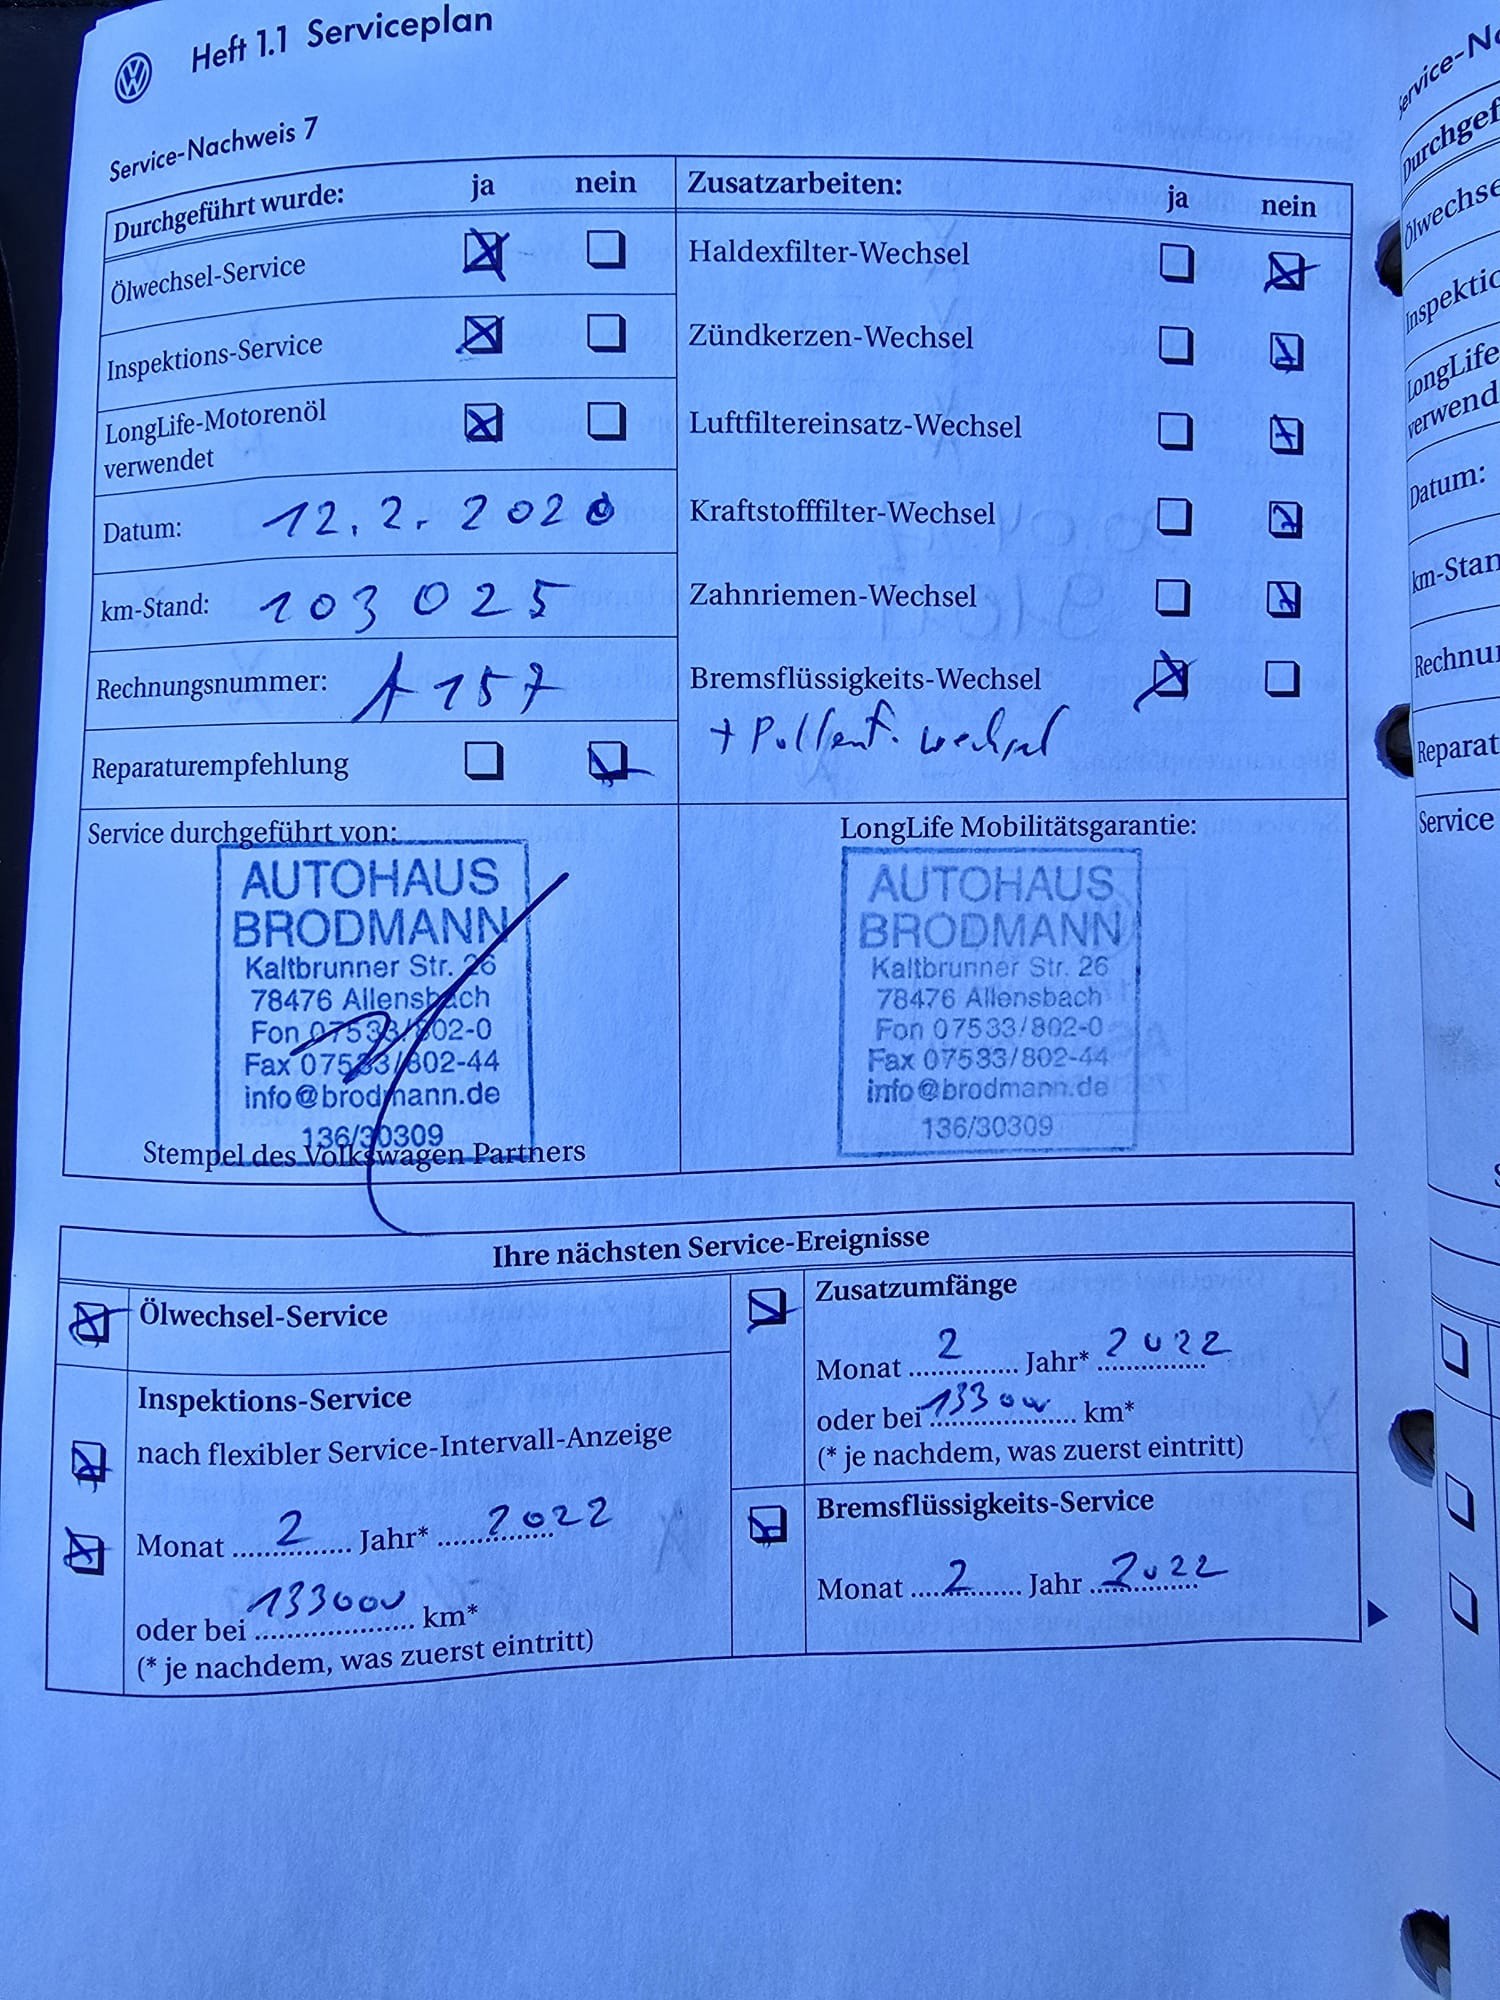 Heft 1.1 Serviceplan
Service-Nachweis 7
Durchgeführt wurde: ja nein
Ölwechsel-Service
Inspektions-Service
LongLife-Motorenöl
verwendet
Datum: 12.2.2020
km-Stand: 103 025
Rechnungsnummer: A157
Reparaturempfehlung
Zusatzarbeiten: ja nein
Haldexfilter-Wechsel
Zündkerzen-Wechsel
Luftfiltereinsatz-Wechsel
Kraftstofffilter-Wechsel
Zahnriemen-Wechsel
Bremsflüssigkeits-Wechsel
+ Pollenf. wechsel
Service durchgeführt von:
AUTOHAUS
BRODMANN
Kaltbrunner Str. 26
78476 Allensbach
Fon 07533/802-0
Fax 07533/802-44
info@brodmann.de
136/30309
Stempel des Volkswagen Partners
LongLife Mobilitätsgarantie:
AUTOHAUS
BRODMANN
Kaltbrunner Str. 26
78476 Allensbach
Fon 07533/802-0
Fax 07533/802-44
info@brodmann.de
136/30309
Ihre nächsten Service-Ereignisse
Ölwechsel-Service
Inspektions-Service
nach flexibler Service-Intervall-Anzeige
Monat 2 Jahr* 2022
oder bei 133000 km*
(* je nachdem, was zuerst eintritt)
Zusatzumfänge
Monat 2 Jahr* 2022
oder bei 133000 km*
(* je nachdem, was zuerst eintritt)
Bremsflüssigkeits-Service
Monat 2 Jahr 2022
Datum:
Service